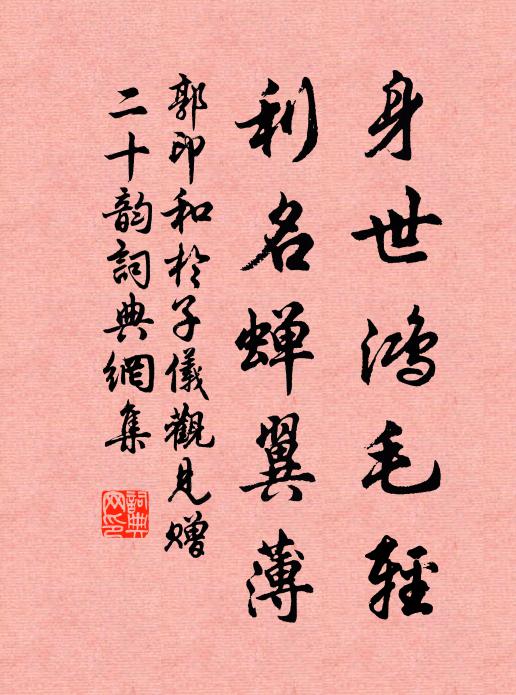 身世鸿毛軽
利名蝉翼薄
郭印和於子儀觀見贈
二十韵詞典網集
詞典网印